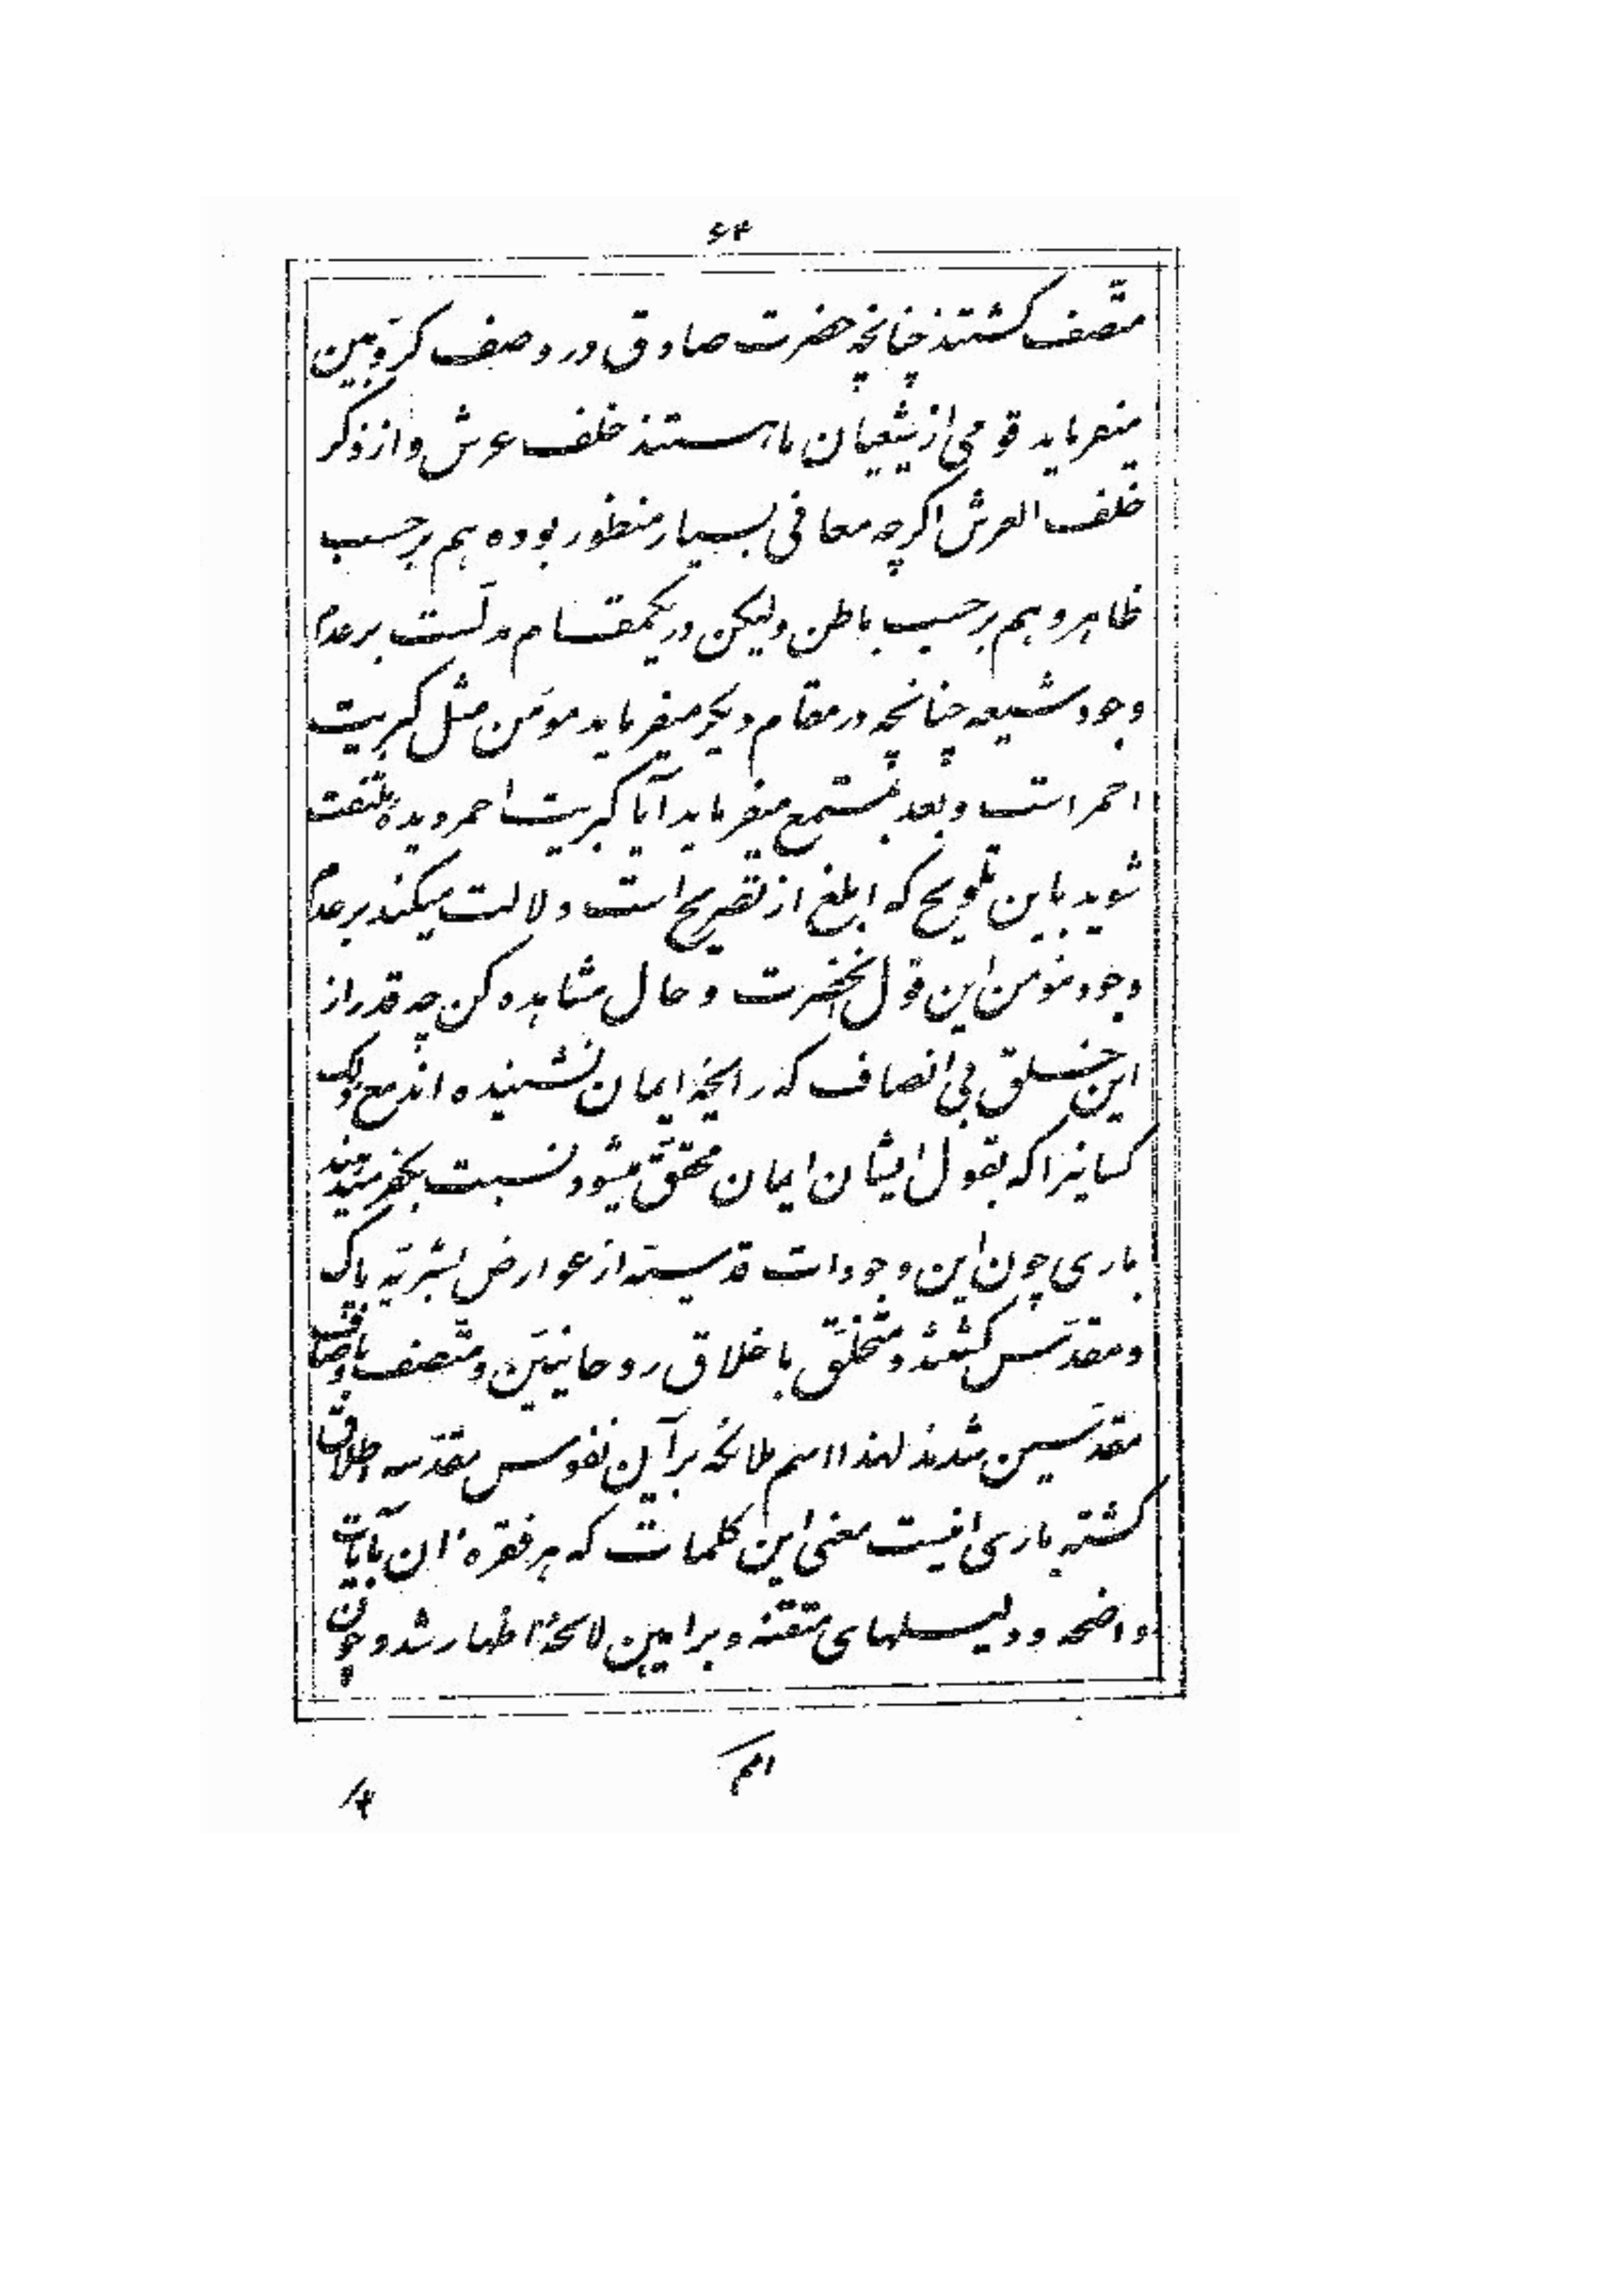 ۶۴
متّصف کشتند چنانچه حضرت صادق در وصف کرّوبین
میفرماید قومی از شیعیان ما هستند خلف عرش و از ذکر
خلف العرش اکرچه معانی بسیار منظور بوده هم بر حسب
ظاهر و هم بر حسب باطن ولیکن در یکمقام مدلّست بر عدم
وجود شیعه چنانچه در مقام دیکر میفرماید مؤمن مثل کبریت
احمر است و بعد بمستمع میفرماید آیا کبریت احمر دیدهٔ ملتفت
شوید باین تلویح که ابلغ از تصریح است دلالت میکند بر عدم
وجود مؤمن این قول آنحضرت و حال مشاهده کن چه قدر از
این خلق بی انصاف که رایحهٔ ایمان نشنیده اند مع ذلک
کسانیرا که بقول ایشان ایمان محقّق میشود نسبت بکفر میدهند
باری چون این وجودات قدسیّه از عوارض بشریّه پاک
و مقدّس کشتند و متخلّق باخلاق روحانییّن و متّصف باوصاف
مقدّسین شدند لهذا اسم ملائکه بر آن نفوس مقدّسه اطلاق
کشته باری اینست معنی این کلمات که هر فقرهٔ ان بآیات
واضحه و دلیلهای متقنه و براهین لائحهٔ اظهار شد و چون
امم